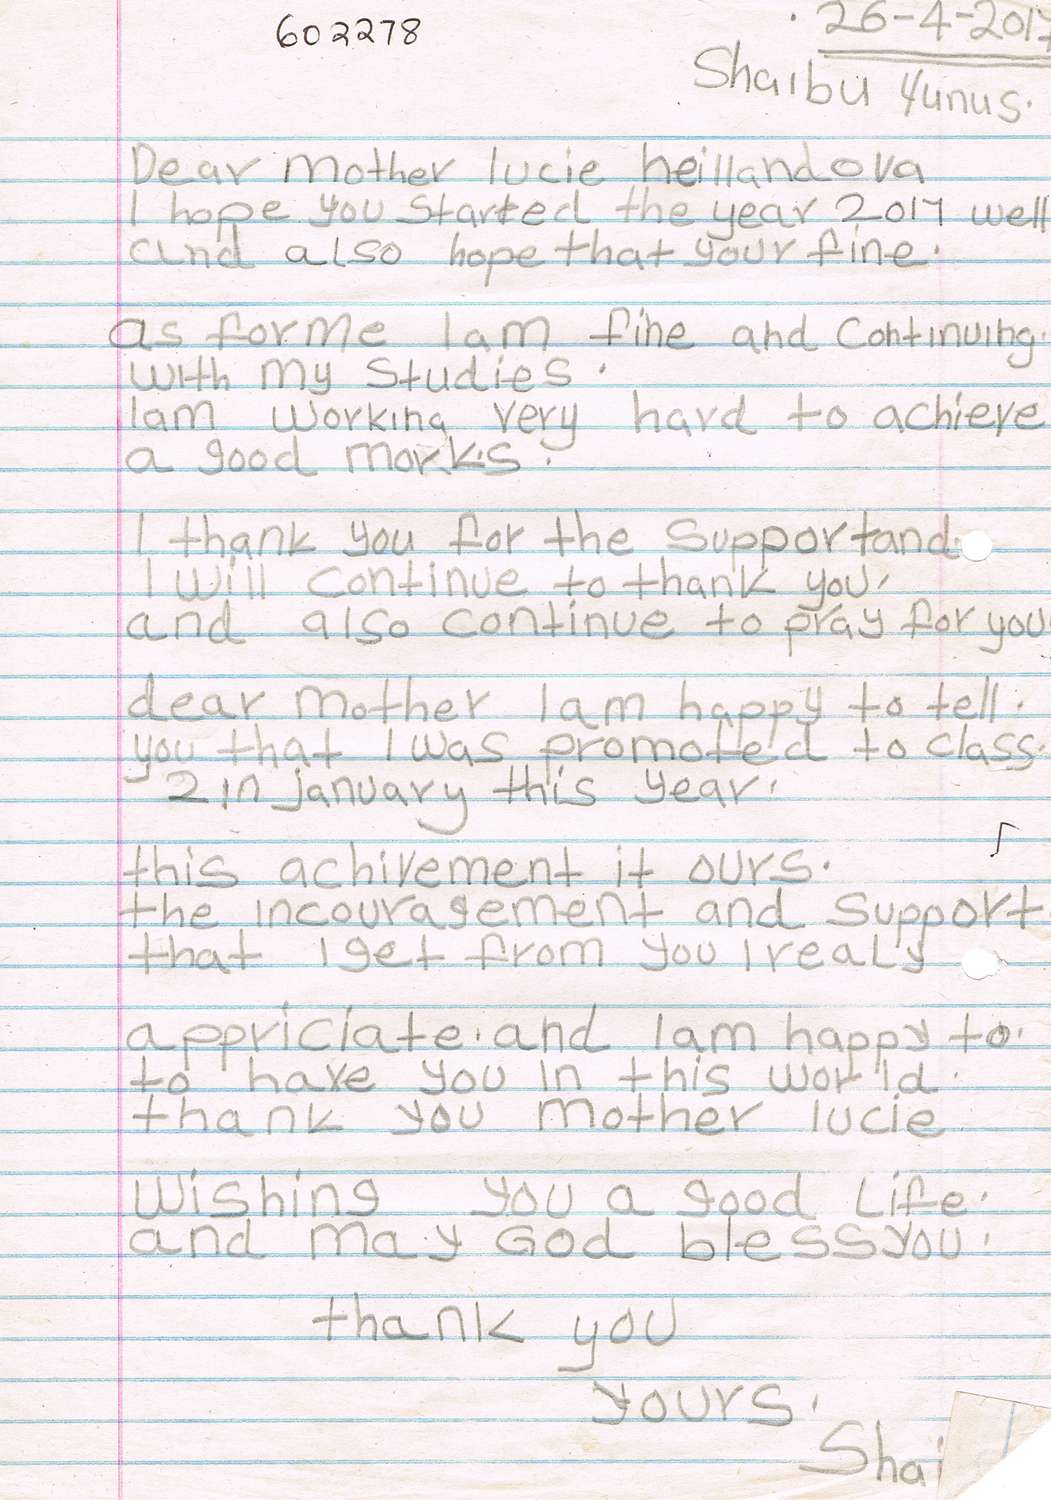 602278
26-4-2017
Shaibu Yunus.
Dear mother lucie heillandova
I hope you started the year 2017 well
and also hope that your fine.
as for me I am fine and Continuing.
with my studies.
I am working very hard to achieve
a good marks.
I thank you for the Support and
I will continue to thank you,
and also continue to pray for you.
dear mother I am happy to tell.
you that I was promoted to class.
2 in january this year.
this achivement it ours.
the incouragement and support
that I get from you I realy
appriciate. and I am happy to.
to have you in this world.
thank you mother lucie
Wishing you a good Life.
and may God bless you.
thank you
yours.
Shai